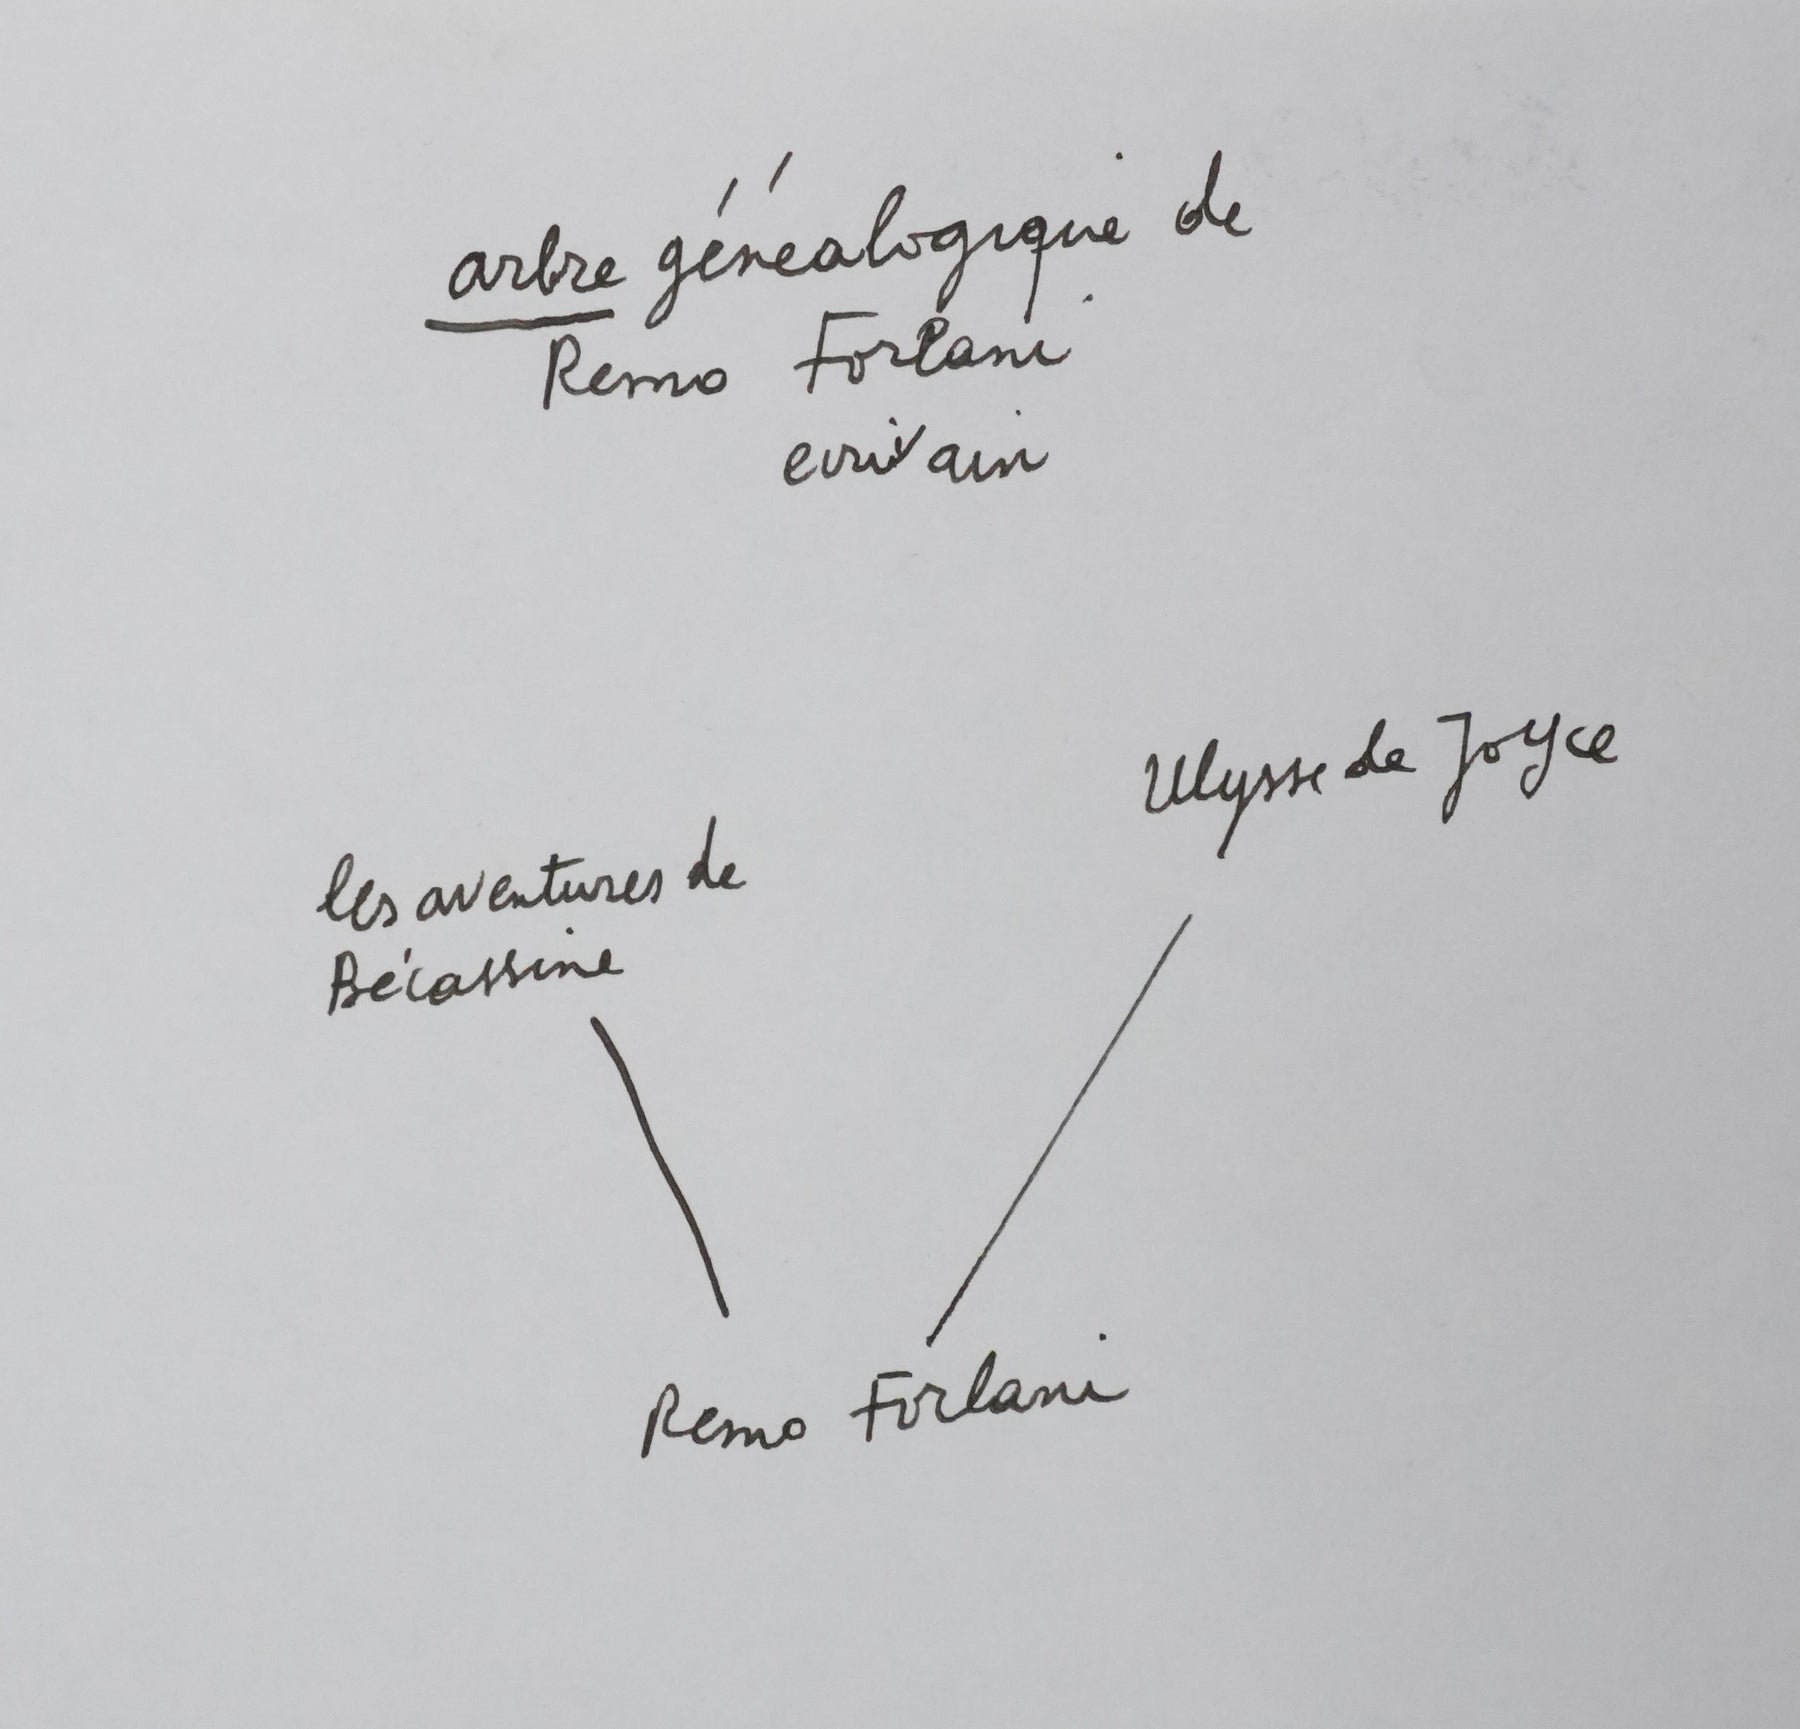 arbre généalogique de
Remo Forlani
ecrivain
Ulysse de Joyce
les aventures de
Bécassine
Remo Forlani